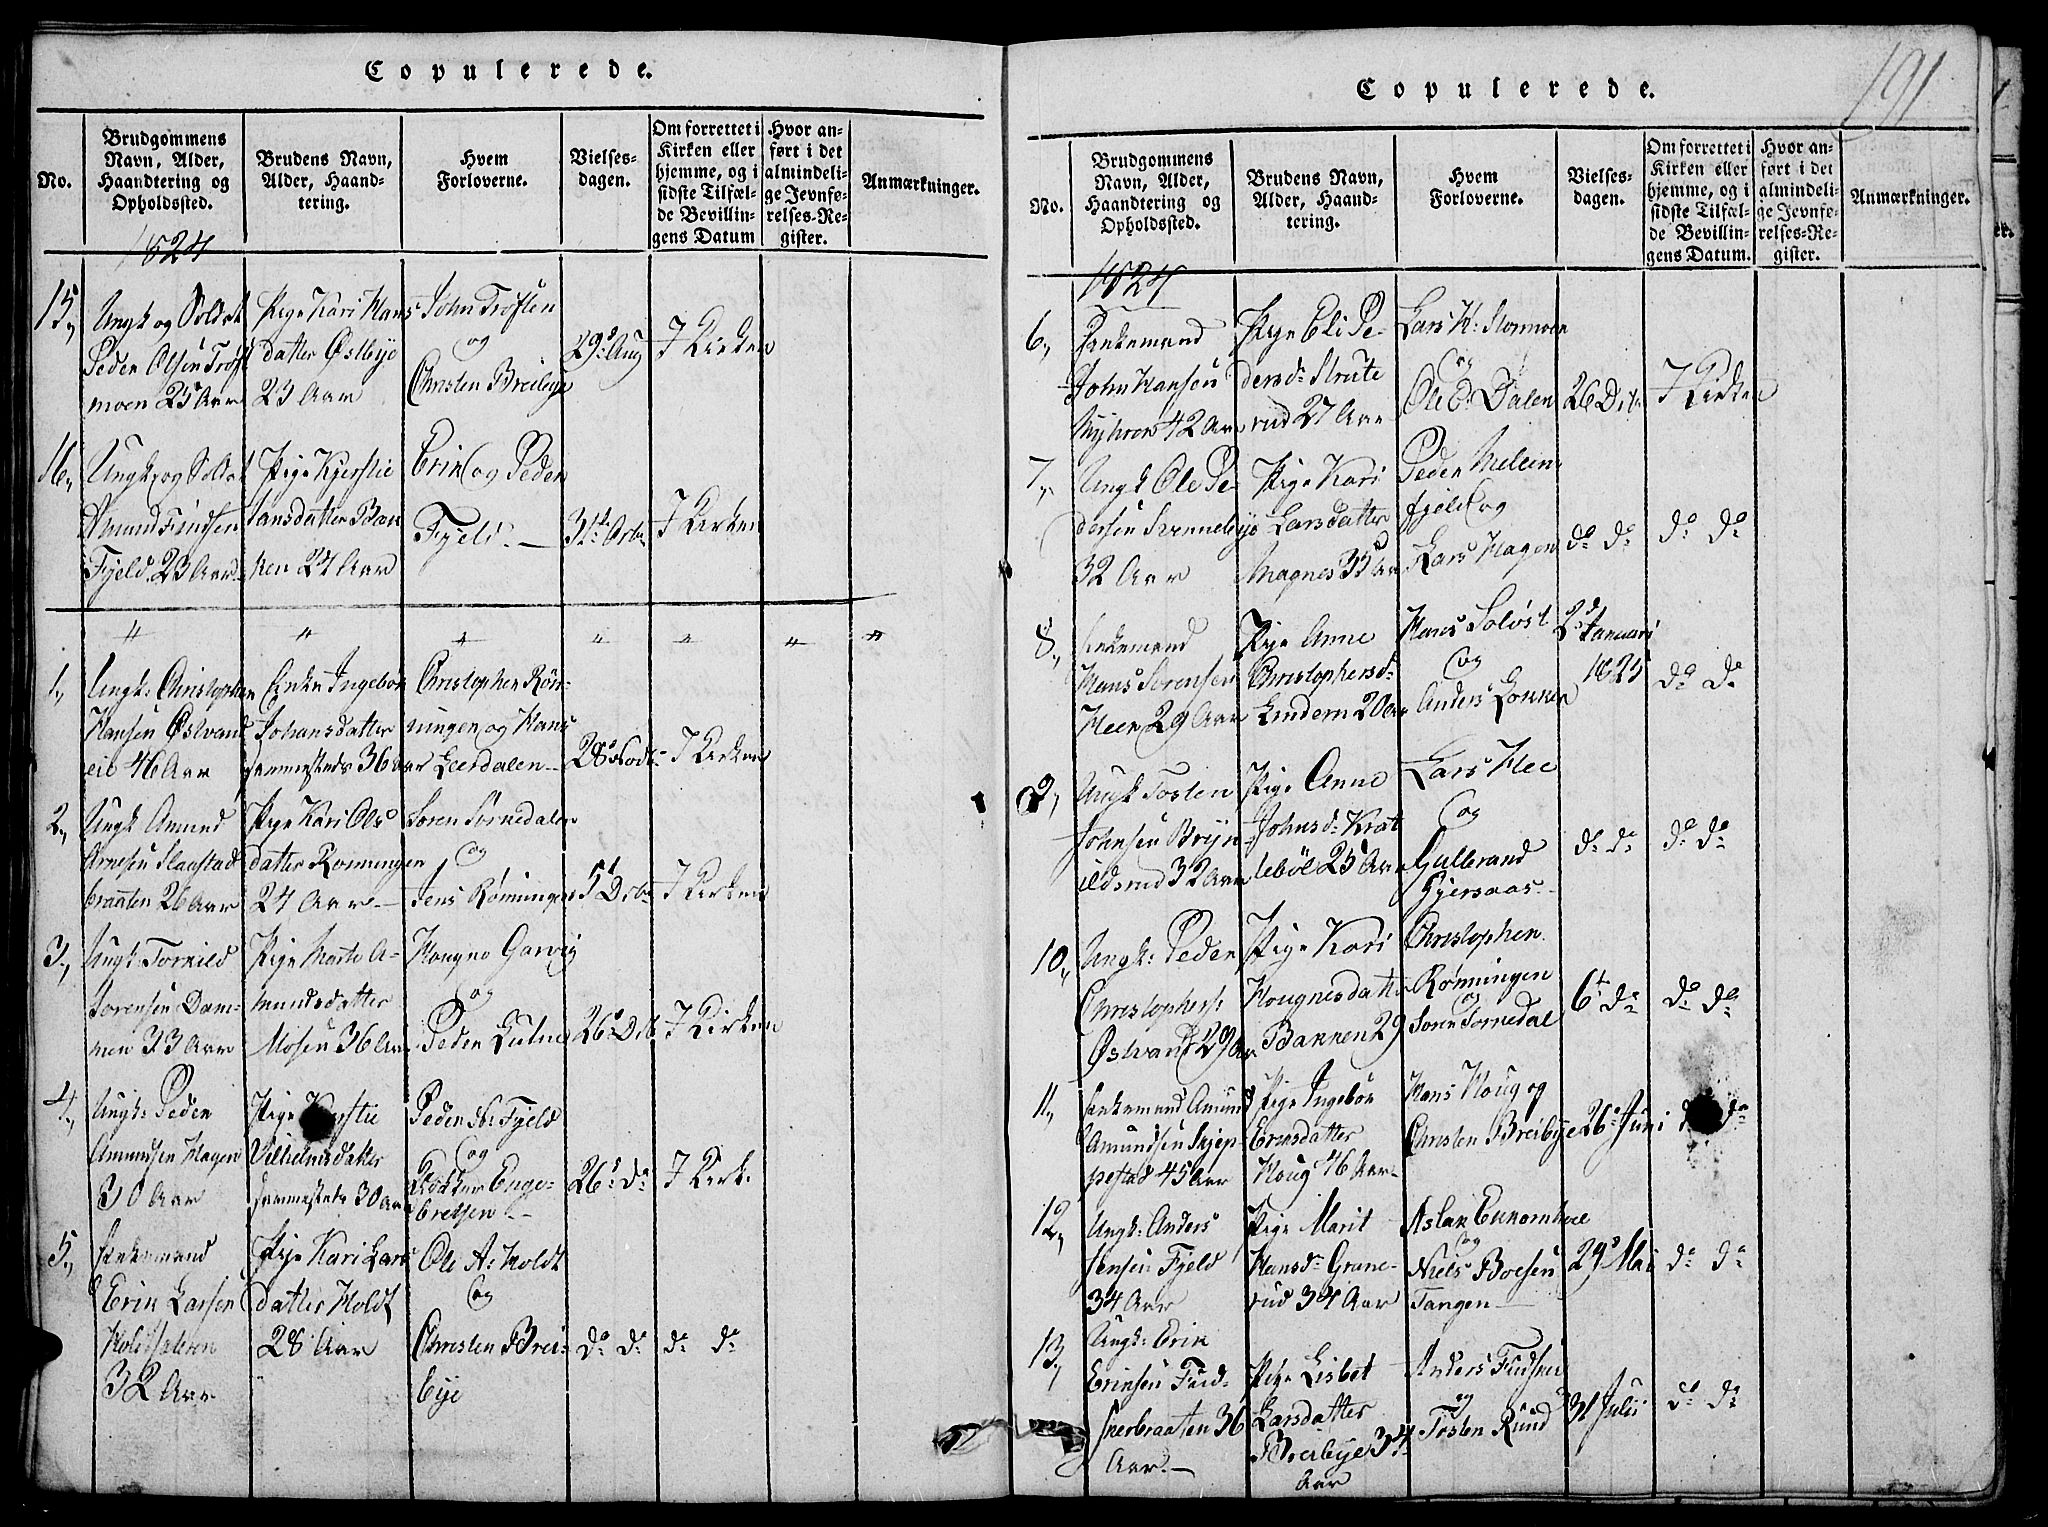 Copulerede.
No.
Brudgommens Navn, Alder, Haandtering og Opholdssted.
Brudens Navn, Alder, Haandtering.
Hvem Forloverne.
Vielsesdagen.
Om forrettet i Kirken eller hjemme, og i sidste Tilfælde Bevillingens Datum
Hvor anført i det almindelige Jevnførelses-Register.
Anmærkninger.
1824
15,
Ungk og Soldat
Peder Olsen
moen 25 Aar
Pige Kari Hans
datter Østbye
23 Aar
John
og
Christen Breibye
29d Aug
I Kirken
16,
Ungk og Soldat
Amund
Fjeld 23 Aar
Pige Kjerstie
Bak
ken 24 Aar
Erik og Peder
Fjeld
31te Octbr
I Kirken
" " " " " " "
1,
Ungk: Christopher
Hansen Østvand
eie 46 Aar
Enke Ingebor
Johansdatter
sammesteds 36 Aar
Christopher Røn-
ningen og Hans
Leerdalen
28d
I Kirken
2,
Ungk Amund
Arnesen Slaastad
braaten 26 Aar
Pige Kari Ols
datter Ronningen
24 Aar
Soren Sørnedalen
og
Jens Rønningen
5t Dcbr
I Kirken
3,
Ungk: Torkild
Sorensen Dam-
men 33 Aar
Pige Marte A-
mundsdatter
Mosen 36 Aar
Haagne Garvig
og
Peder
26d Dcb
I Kirken
4,
Ungk: Peder
Amundsen Hagen
30 Aar
Pige Kjerstie
Vilhelmsdatter
sammesteds 30 Aar
Peder Fjeld
og
Enge-
bretsen
26d do
I Kirk:
5,
Enkemand
Erik Larsen
Holtsæteren
32 Aar
Pige Kari Lars
datter Holdt
28 Aar
Ole A: Holdt
og
Christen Brei-
bye
do do
do do
Copulerede.
191
No.
Brudgommens Navn, Alder, Haandtering og Opholdssted.
Brudens Navn, Alder, Haandtering.
Hvem Forloverne.
Vielsesdagen.
Om forrettet i Kirken eller hjemme, og i sidste Tilfælde Bevillingens Datum.
Hvor anført i det almindelige Jevnførelses-Register.
Anmærkninger.
1824
6,
Enkemand
John Hansen
42 Aar
Pige Eli Pe-
dersd: Strute
rud 27 Aar
Lars H: Stormoen
og
Ole E: Dalen
26 Dcbr
I Kirken
7,
Ungk Ole Pe-
dersen
32 Aar
Pige Kari
Larsdatter
Magnes 35 Aar
Peder
fjeld og
Lars Hagen
do do
do do
8,
Enkemand
Hans Sorensen
Heer 29 Aar
Pige Anne
Christophersd:
Lindern 20 Aar
Hans Soløst
og
Anders Løkken
2d Januari
1825
do do
9,
Ungk Tosten
Johnsen Bryn-
ildsrud 32 Aar
Pige Anne
Johnsd: Krat
tebøl 25 Aar
Lars Hee
og
Gulbrand
Gjersaas
do do
do do
10,
Ungk: Peder
Christophers:
Østvand 29 Aar
Pige Kari
Hougnesdatter
Bakken 29
Christopher
Rønningen
og
Soren Sornedal
6t do
do do
11,
Enkemand Amund
Amundsen Skjep-
pestad 45 Aar
Pige Ingebor
Eriksdatter
Houg 46 Aar
Hans Houg og
Christen Breibye
26d Juni
do do
12,
Ungk: Anders
Jensen Fjeld
34 Aar
Pige Marit
Hansd: Grane-
rud 34 Aar
Aslak
og
Niels Boesen
Tangen
29d Mai
do do
13,
Ungk: Erik
Eriksen Frid-
snerbraaten 36
Aar
Pige Lisbet
Larsdatter
Breibye 34
Aar
Anders Fridsner
og
Tosten Rùnd
31 Julii
do do